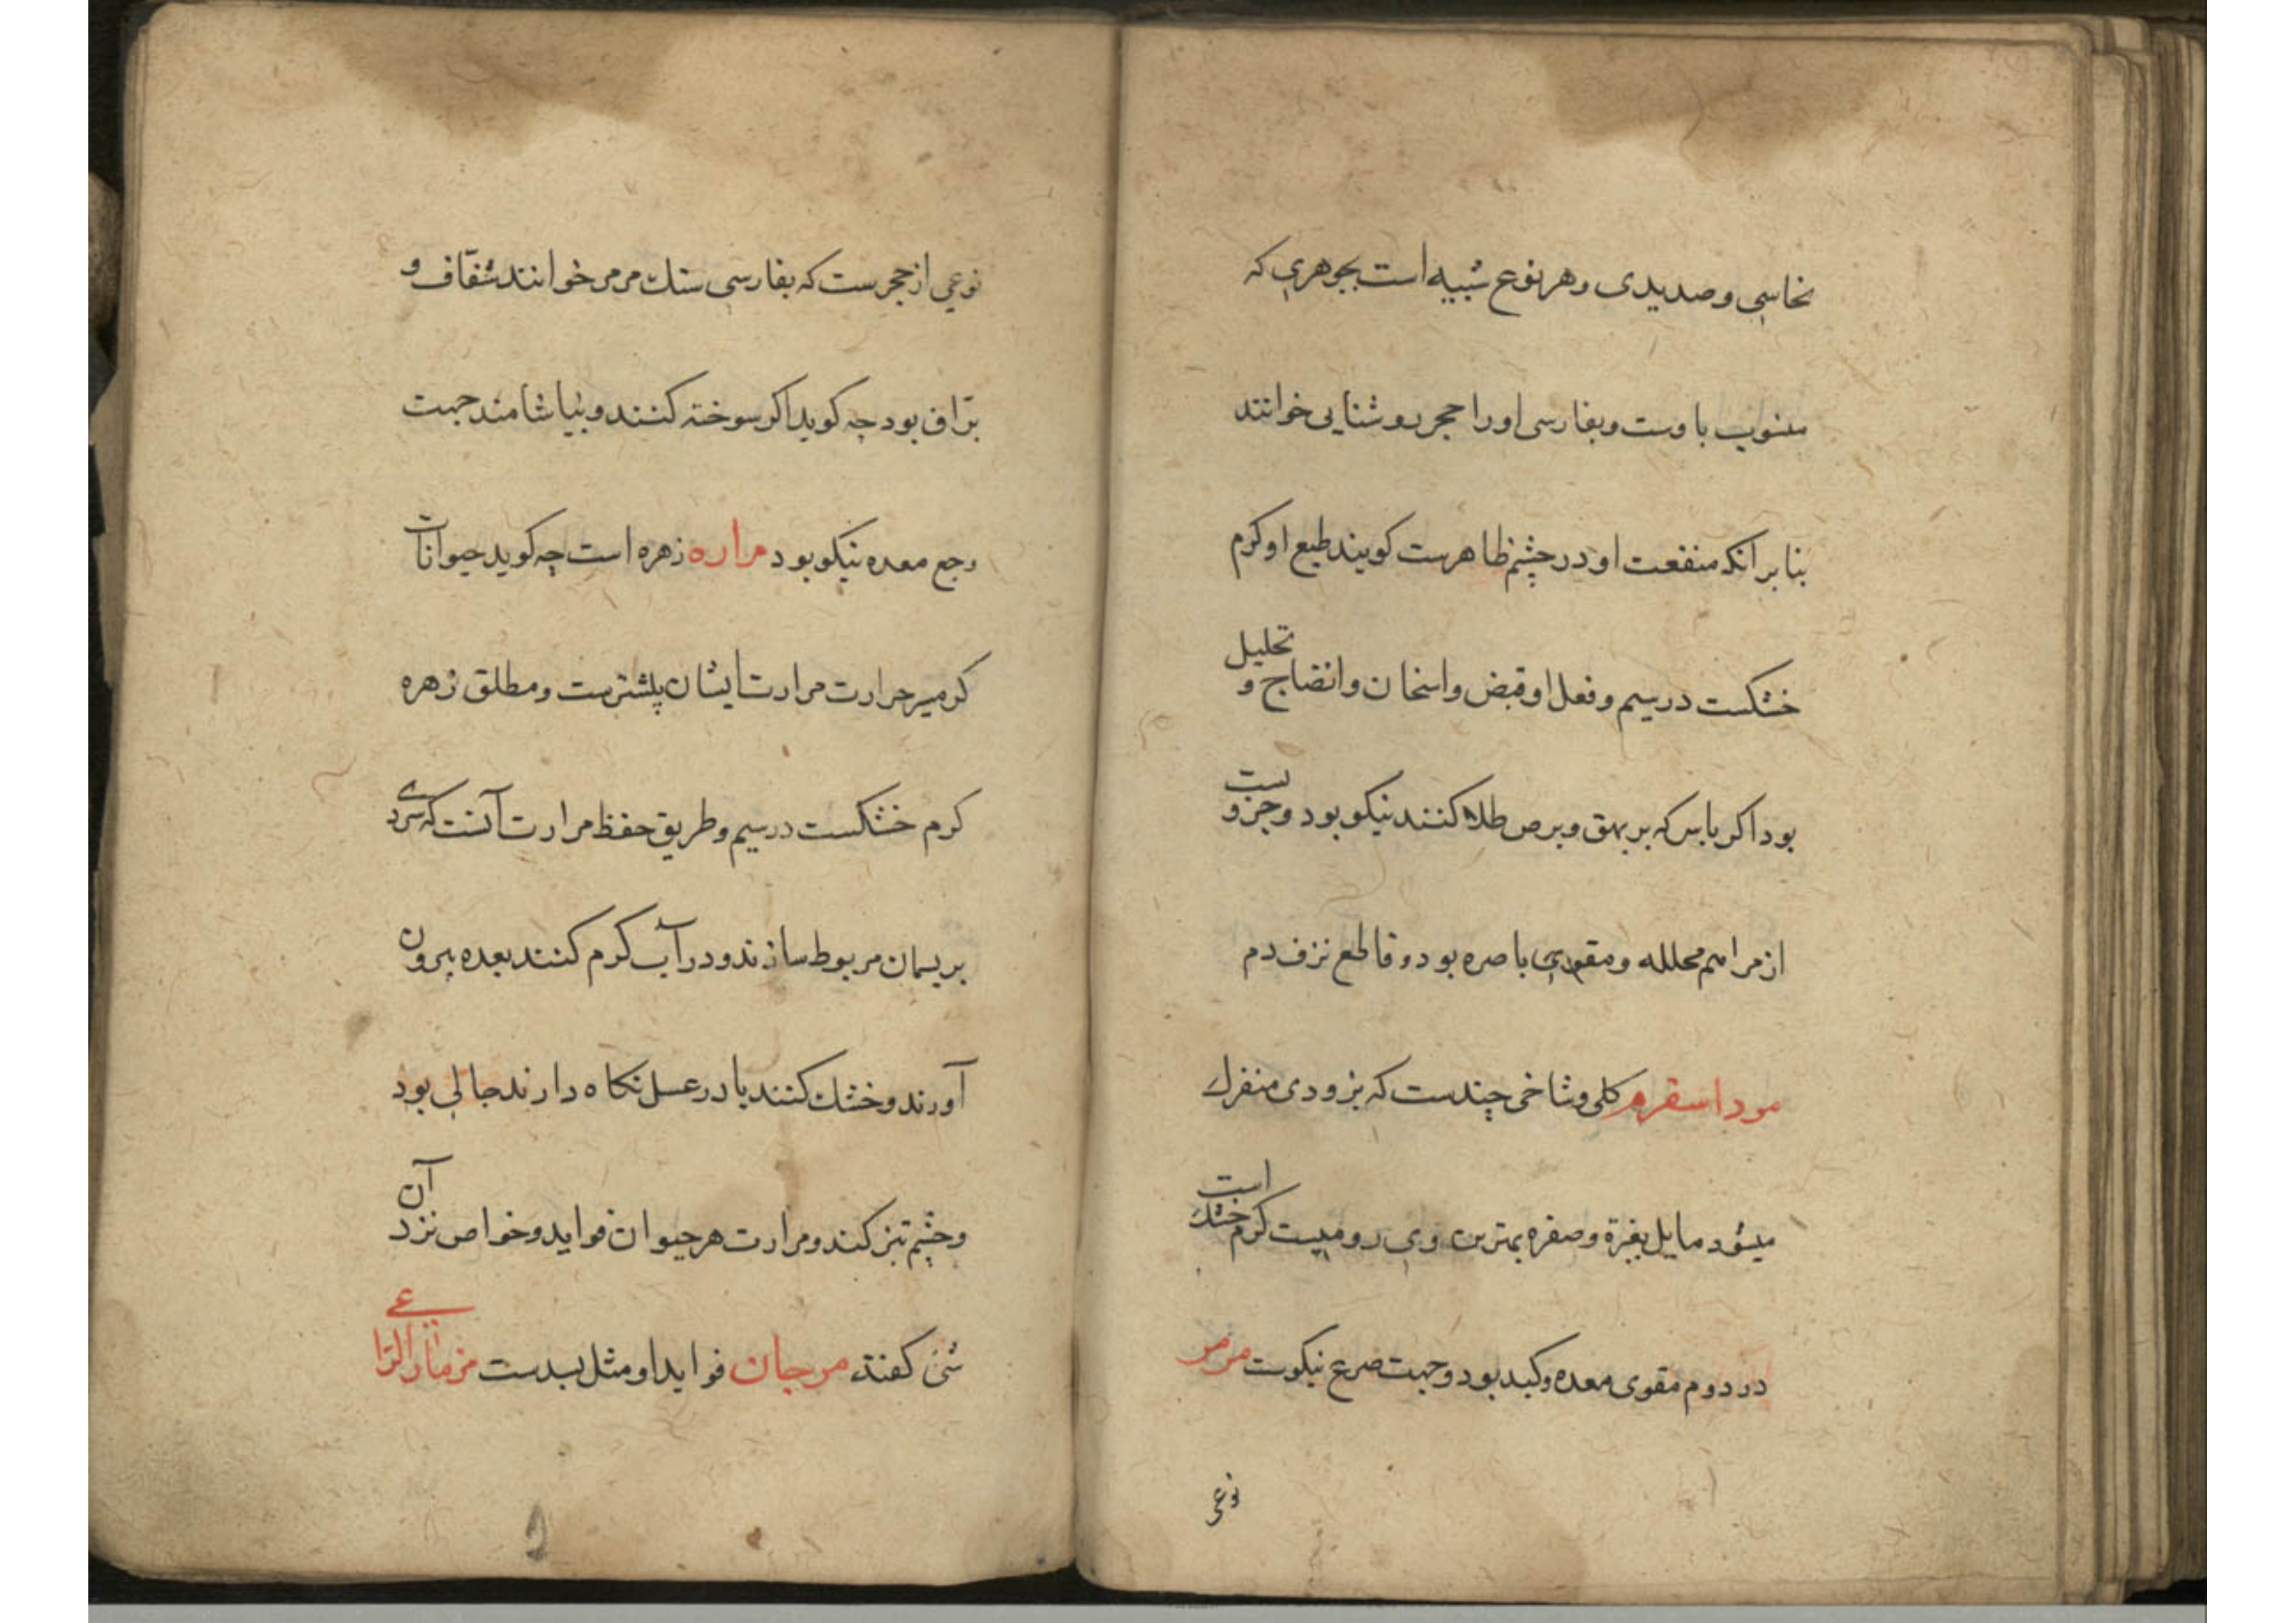 نحاسی و صدیدی و هر نوع شبیه است بجوهری که
منسوب باوست و بفارسی او را حجر روشنایی خوانند
بنابر آنکه منفعت او در چشم ظاهرست کویند طبع او کرم
خشکست درسیم و فعل او قبض و اسخان و انضاج و تحلیل
بود اکر با سرکه بر بهق و برص طلا کنند نیکو بود و جزویست
از مراهم محلله و مقوی باصره بود و قاطع نزف دم
مرداسفرم کلی و شاخی چندست که بزودی منفرک
میشود مایل بغبرة و صفره بهترین وی رومیست کرم خشک است
در دوم مقوی معده و کبد بود و جهت صرع نیکوست مرمر
نوعی
نوعی از حجرست که بفارسی سنك مرمر خوانند شفّاف و
برّاق بود جه کوید اکر سوخته کنند و بیاشامند جهت
وجع معده نیکو بود مراره زهره است جه کوید حیوانات
کرمسیر حرارت مرارت ایشان بیشترست و مطلق زهره
کرم خشکست درسیم و طریق حفظ مرارت آنست که سر وی
بریسمان مربوط سازند و در آب کرم کنند بعده بیرون
آورند و خشك کنند یا در عسل نکاه دارند جالی بود
و چشم تیز کند و مرارت هر حیوان فواید و خواص نزد آن
شی کفته مرجان فواید او مثل بسدست مزمار الراعی